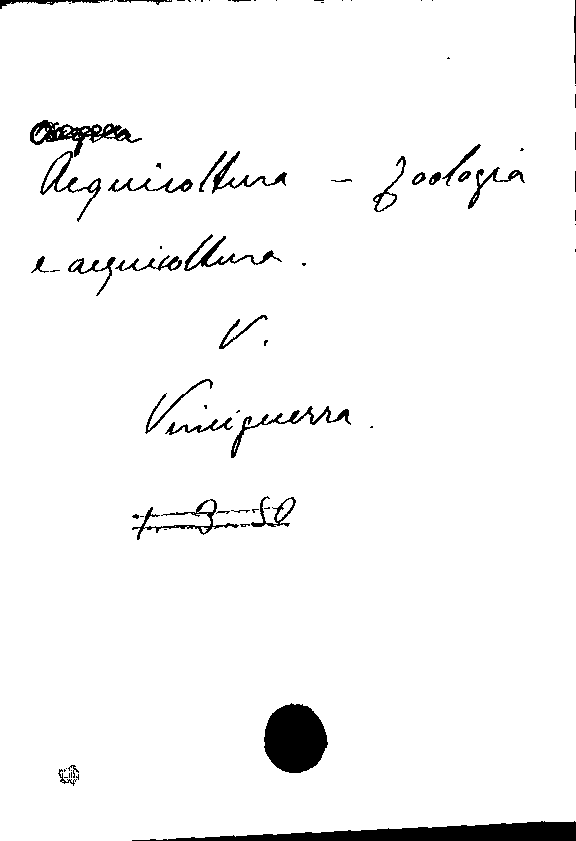 Acquicoltura – Zoologia
e acquicoltura.
V.
Vinciguerra.
1. 3 50